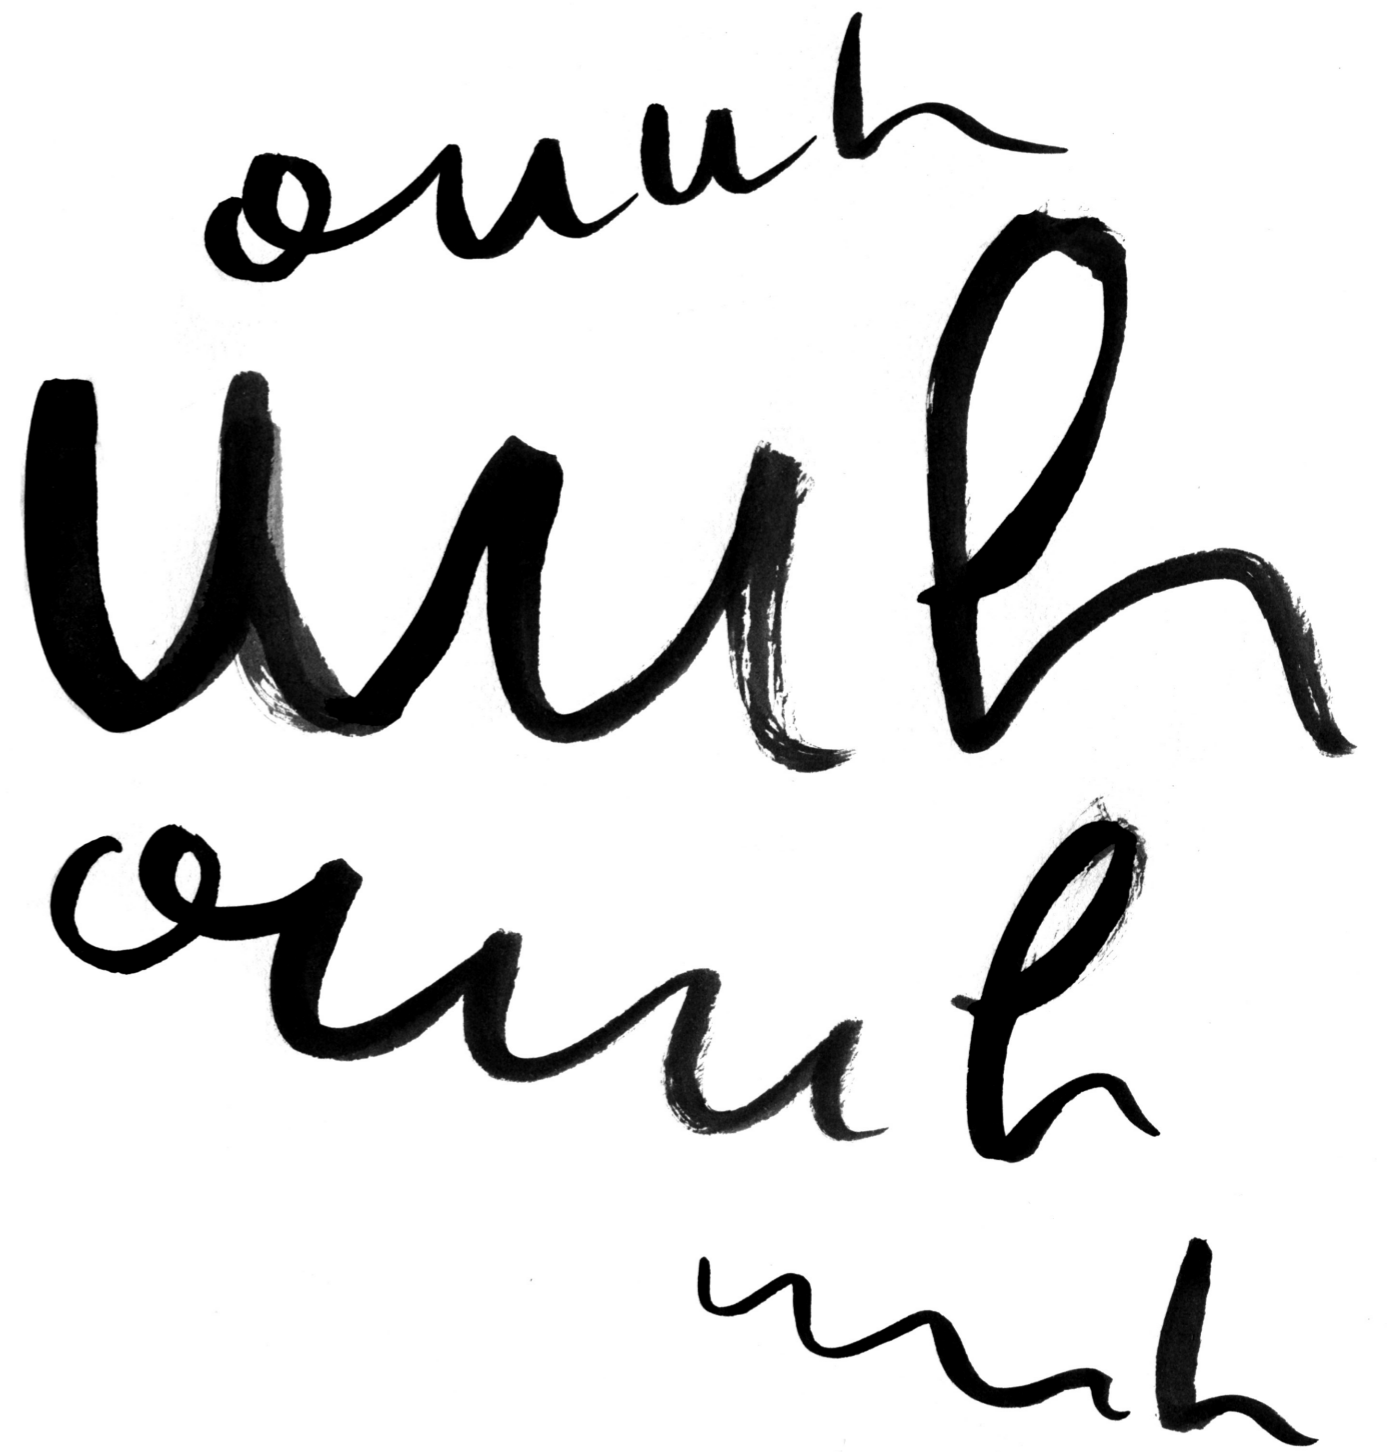 ouuh
uuh
ouuh
uuh